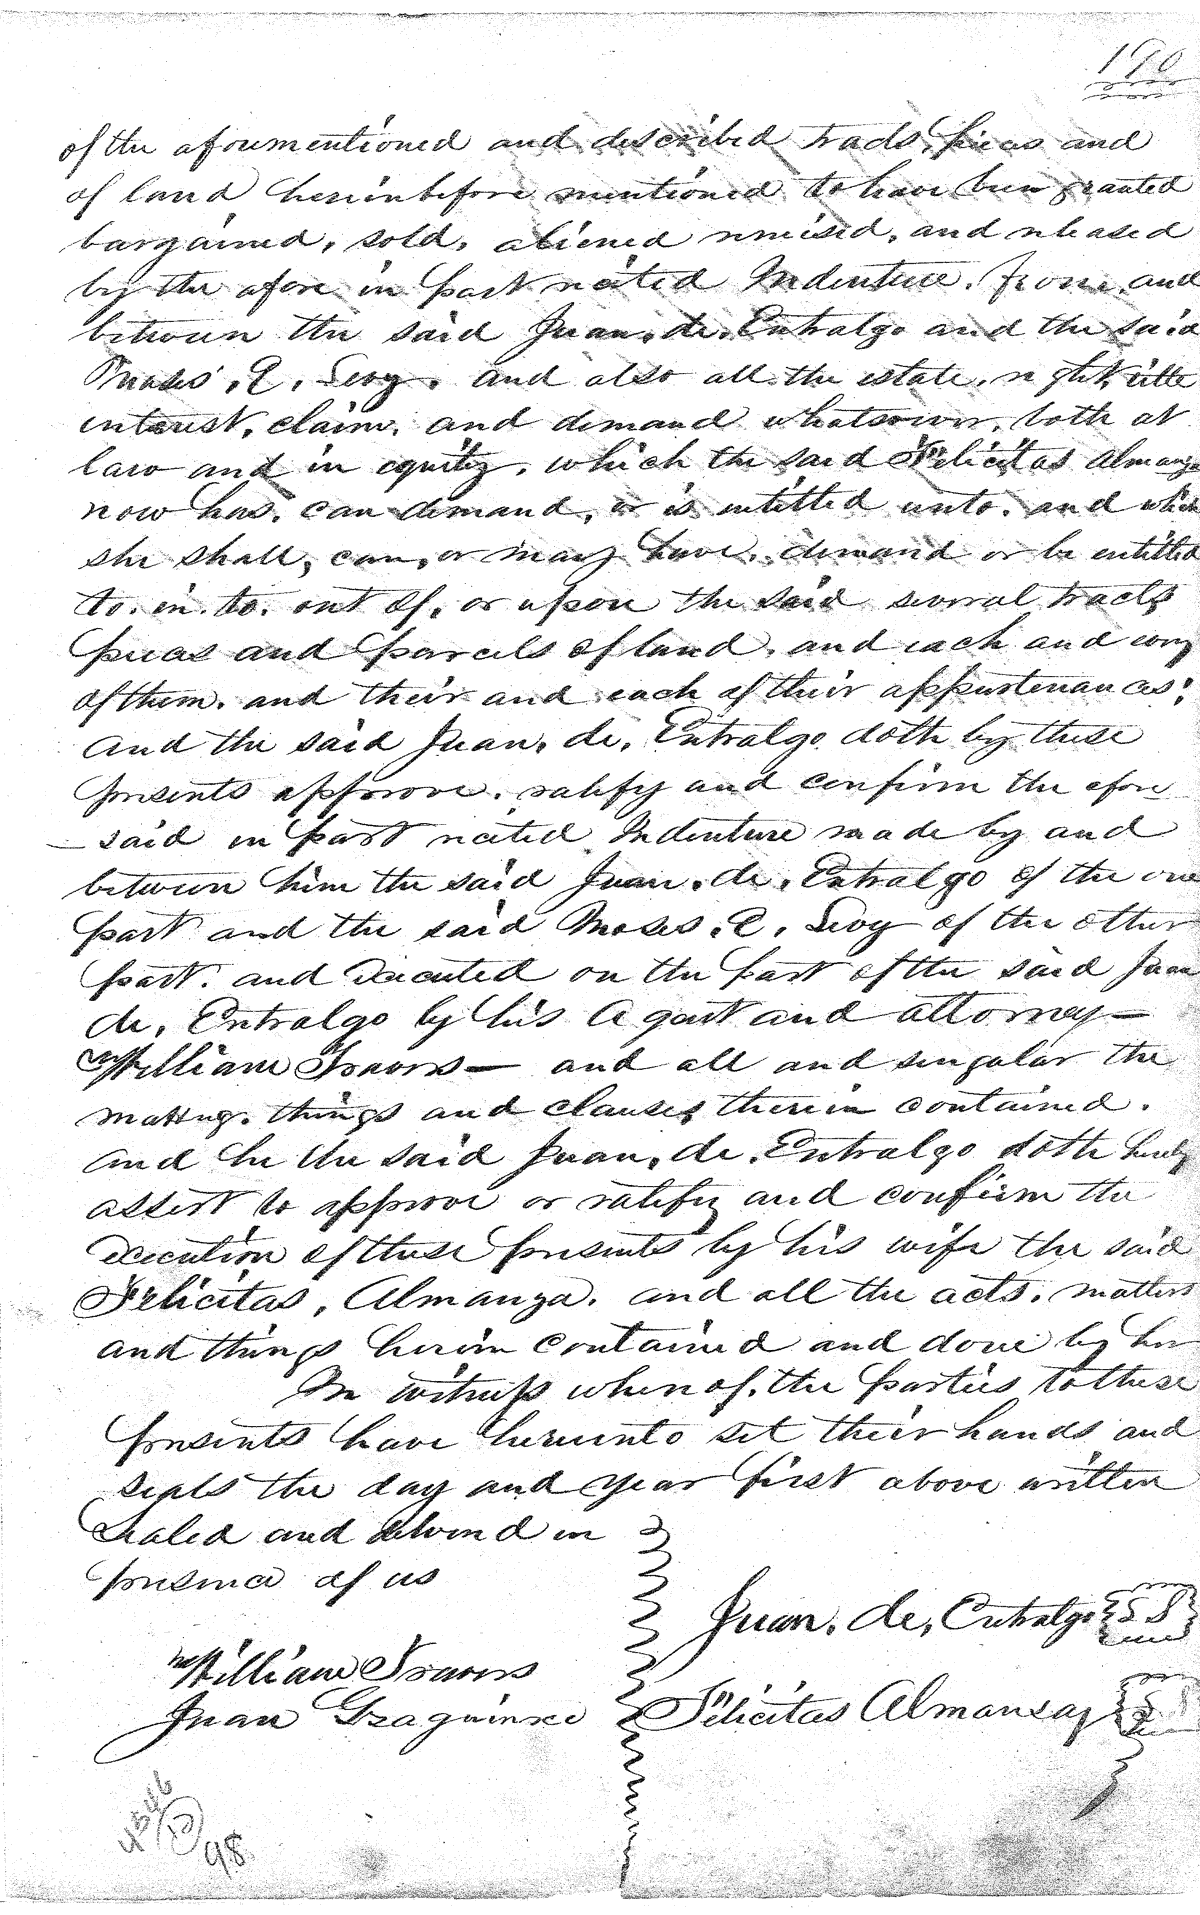 190
of the aforementioned and described tracts, pieces and
of land hereinbefore mentioned to have been granted
bargained, sold, aliened remised, and released
by the afore in part recited Indenture. from, and
between the said Juan, de, Entralgo and the said
Moses, E, Levy, and also all the estate, right, title
interest, claim, and demand whatsoever, both at
law and in equity, which the said Felicitas Almanza
now has, can demand, or is intitled unto, and which
she shall, can, or may have, demand or be entitled
to, in, to, out of, or upon the said several tracts
pieces and parcels of land, and each and every
of them, and their and each of their appurtenances;
And the said Juan, de, Entralgo doth by these
presents approve, ratify and confirm the afore
—said in part recited Indenture made by and
between him the said Juan, de, Entralgo of the one
part and the said Moses, E, Levy of the other
part, and Executed on the part of the said Juan
de, Entralgo by his Agent and attorney—
William Travers— and all and singular the
matters, things and clauses therein contained.
And he the said Juan, de, Entralgo doth hereby
assent to approve or ratify and confirm the
Execution of these presents by his wife the said
Felicitas, Almanza, and all the acts, matters
and things herein contained and done by her
In witness whereof, the parties to these
presents have hereunto set their hands and
seals the day and year first above written
Sealed and delivered in
presence of us
Juan, de, Entralgo
William Travers
Juan
Felicitas Almansa
98